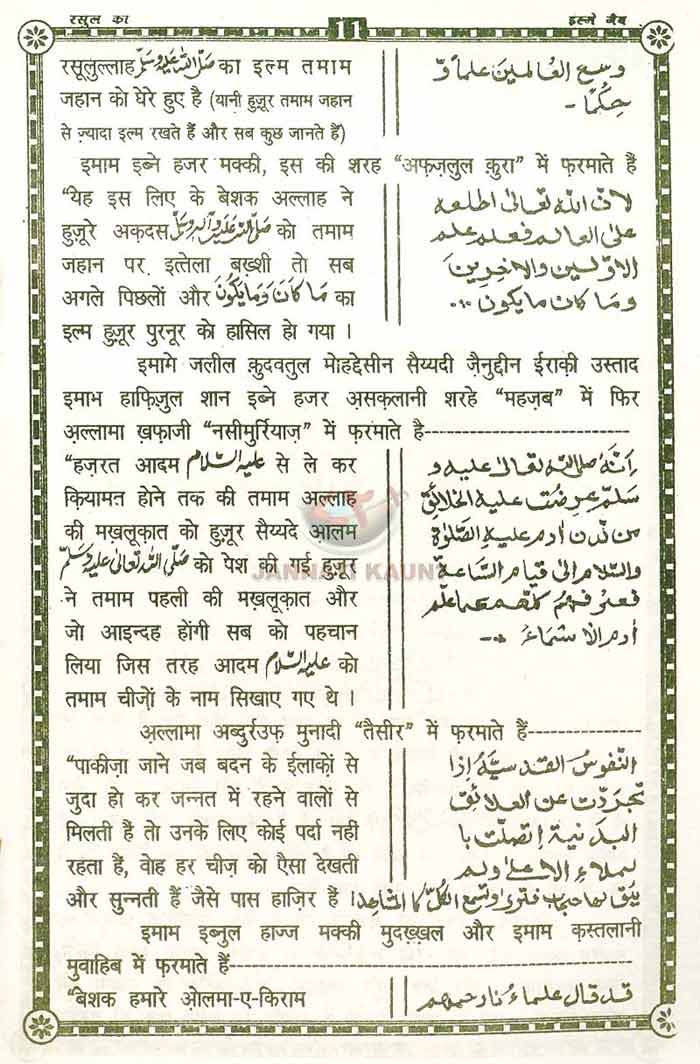 रसूल का
11
इल्मे ग़ैब
रसूलुल्लाह صلى الله عليه وسلم का इल्म तमाम
जहान को घेरे हुए है (यानी हुज़ूर तमाम जहान
से ज़्यादा इल्म रखते हैं और सब कुछ जानते हैं)
وسع العالمين علماً وّ
حِكمًا-
इमाम इब्ने हजर मक्की, इस की शरह “अफ़ज़लुल क़ुरा” में फ़रमाते हैं
“यह इस लिए के बेशक अल्लाह ने
हुज़ूरे अकदस صلى الله عليه وآله وسلم को तमाम
जहान पर इत्तेला बख़्शी तो सब
अगले पिछलों और مَا كَانَ وَمَا يَكُونُ का
इल्म हुज़ूर पुरनूर को हासिल हो गया ।
لانّ الله تعالىٰ اطلعه
على العالم فعلم علم
الاوّلين والاخرين
وما كان ما يكون
इमामे जलील क़ुदवतुल मोहद्देसीन सैय्यदी ज़ैनुद्दीन ईराक़ी उस्ताद
इमाभ हाफ़िज़ुल शान इब्ने हजर अ़सक़लानी शरहे “महज़ब” में फिर
अ़ल्लामा ख़फ़ाजी “नसीमुर्रियाज़” में फ़रमाते है
“हज़रत आदम عليه السلام से ले कर
कि़यामत होने तक की तमाम अल्लाह
की मख़लूक़ात को हुज़ूर सैय्यदे आ़लम
صلى الله تعالى عليه وسلم को पेश की गई हुज़ूर
ने तमाम पहली की मख़लूक़ात और
जो आइन्दह होंगी सब को पहचान
लिया जिस तरह आदम عليه السلام को
तमाम चीज़ों के नाम सिखाए गए थे ।
اِنّه صلى الله تعالىٰ عليه و
سلم عرضت عليه الخلائق
من لدن ادم عليه الصّلوٰة
والسّلام الىٰ قيام السّاعة
فعرفهم كلهم كما علّم
ادم الاسماءُ
JANNATI KAUN
अ़ल्लामा अब्दुर्रउफ़ मुनादी “तैसीर” में फ़रमाते हैं
“पाकीज़ा जाने जब बदन के ईलाक़ों से
जुदा हो कर जन्नत में रहने वालों से
मिलती हैं तो उनके लिए कोई पर्दा नहीं
रहता हैं, वोह हर चीज़ को ऐसा देखती
और सुन्नती हैं जैसे पास हाज़िर हैं ।
النّفوس القدسيّة اِذا
تجرّدت عن العلائق
البدنية اِتّصلت با
لملاء الاعلىٰ ولم
يبق لها حجاب فترىٰ وتسمع الكلّ كالمشاهد
इमाम इब्नुल हाज्ज मक्की मुदख़्ख़ल और इमाम कस्तलानी
मुवाहिब में फ़रमाते हैं
“बेशक हमारे ओ़लमा-ए-किराम
قد قال علماءُنا رحمهم